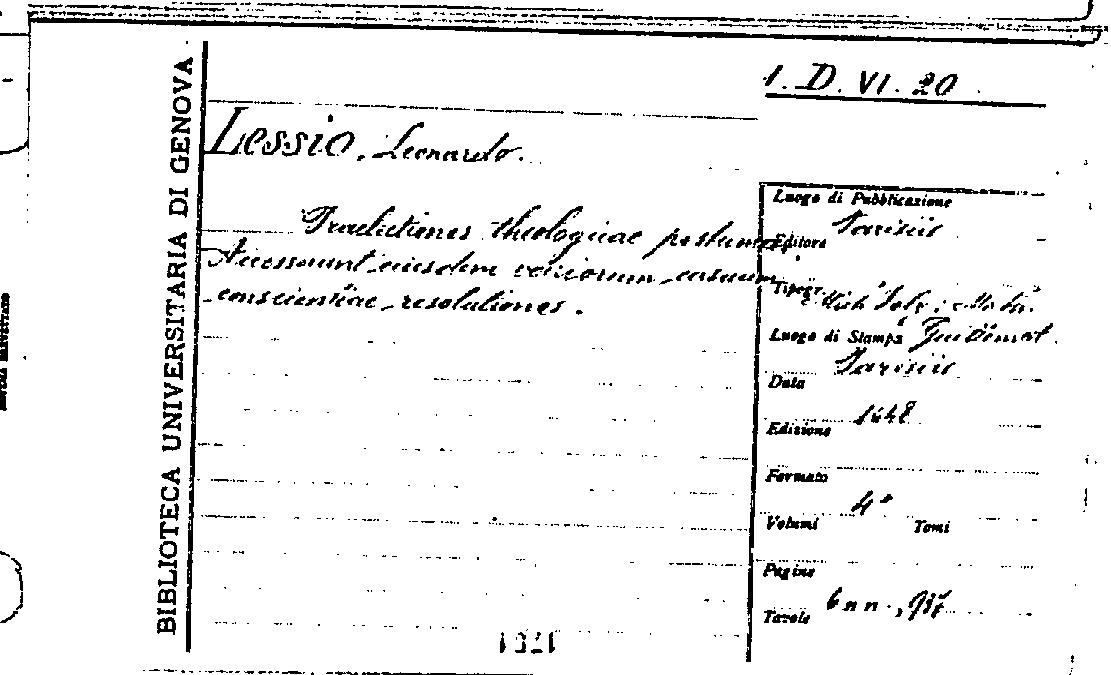 BIBLIOTECA UNIVERSITARIA DI GENOVA
1. D. VI. 20
Lessio, Leonardo.
Praelectiones theologicae posthumae.
Accesserunt eiusdem variorum casuum
conscientiae resolutiones.
Luogo di Pubblicazione
Parisiis
Editore
Tipogr.
Mich. Soly; Math.
Luogo di Stampa Guillemot.
Parisiis
Data
1648
Edizione
Formato
4°
Volumi Tomi
Pagine
6 nn.,
Tavole